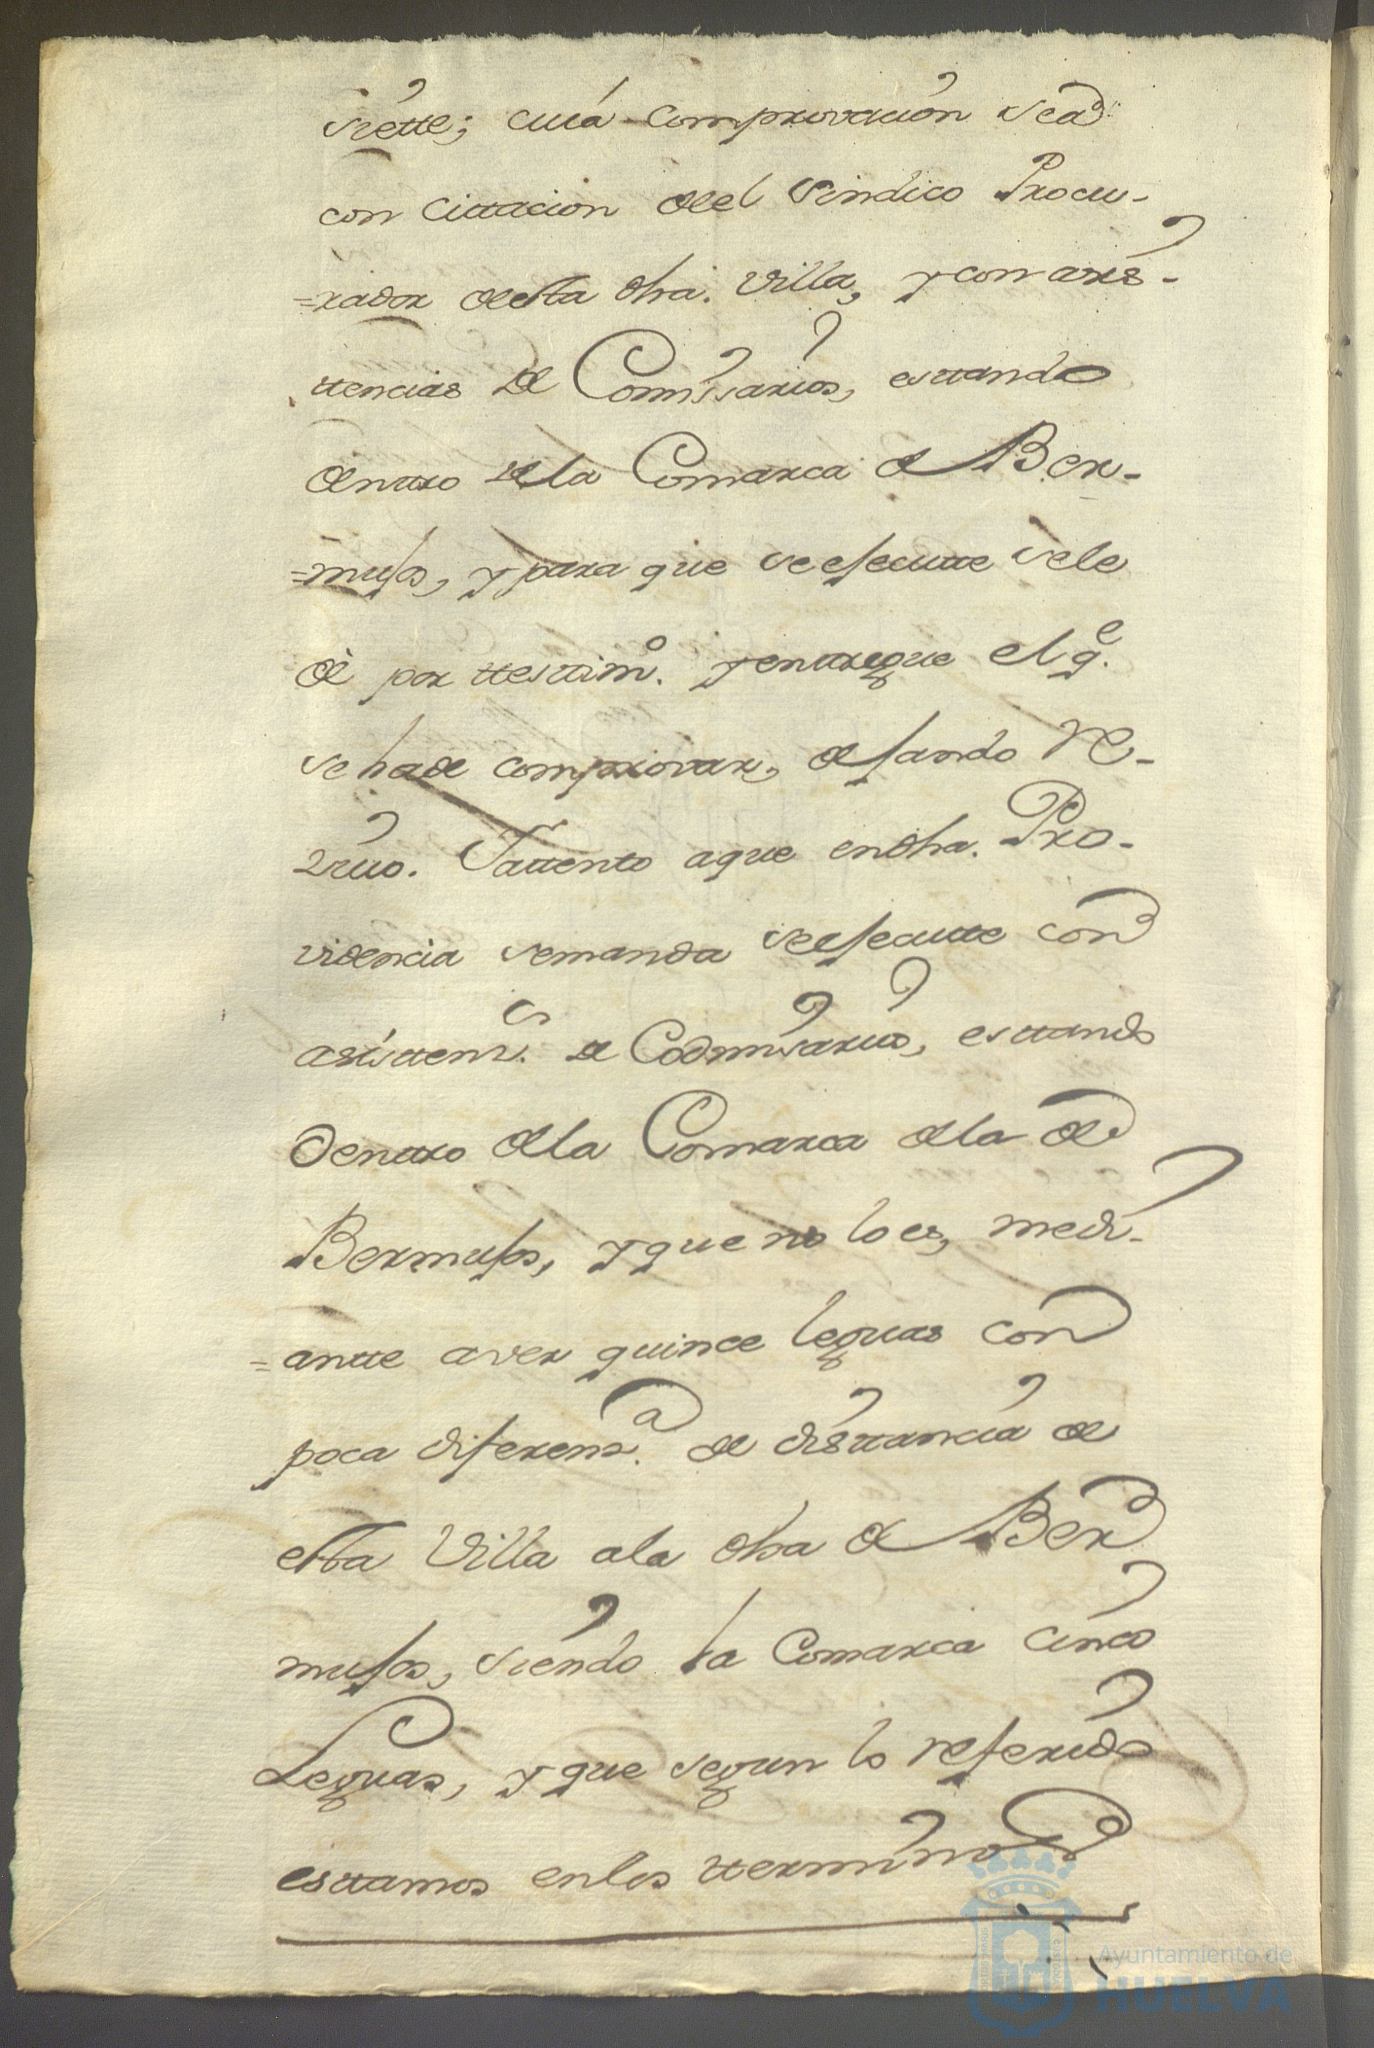 siette; cuia comprovacion sea
con cittacion del Sindico Procu-
=rador desta dha. Villa, y con asis-
ttencias de Comissarios, esttando
denttro de la Comarca de Ber-
=mujos, y para que se ejecutte se le
dè por ttesttimo. y enttregue el qe.
se hade comprovar, dejando re-
zivo. Yattento a que en dha. Pro-
videncia se manda se ejecutte con
asisttenzs. de Codmisario, esttando
Denttro de la Comarca de la de
Bermujos, y que no lo es, medi-
=antte aver quince leguas con
poca diferenza. de disttancia de
esta Villa a la dha de Ber
mujos, siendo la Comarca cinco
Leguas, y que segun lo referido
esttamos en los tterminos
Ayuntamiento de
HUELVA